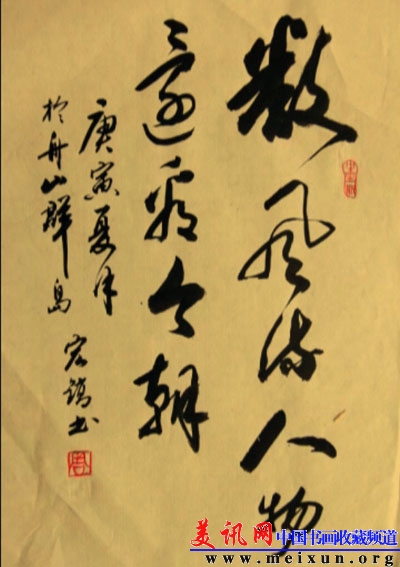 數風流人物
還看今朝
庚寅夏月
於舟山群島
宏 书
美讯网 中国书画收藏频道
www.meixun.org